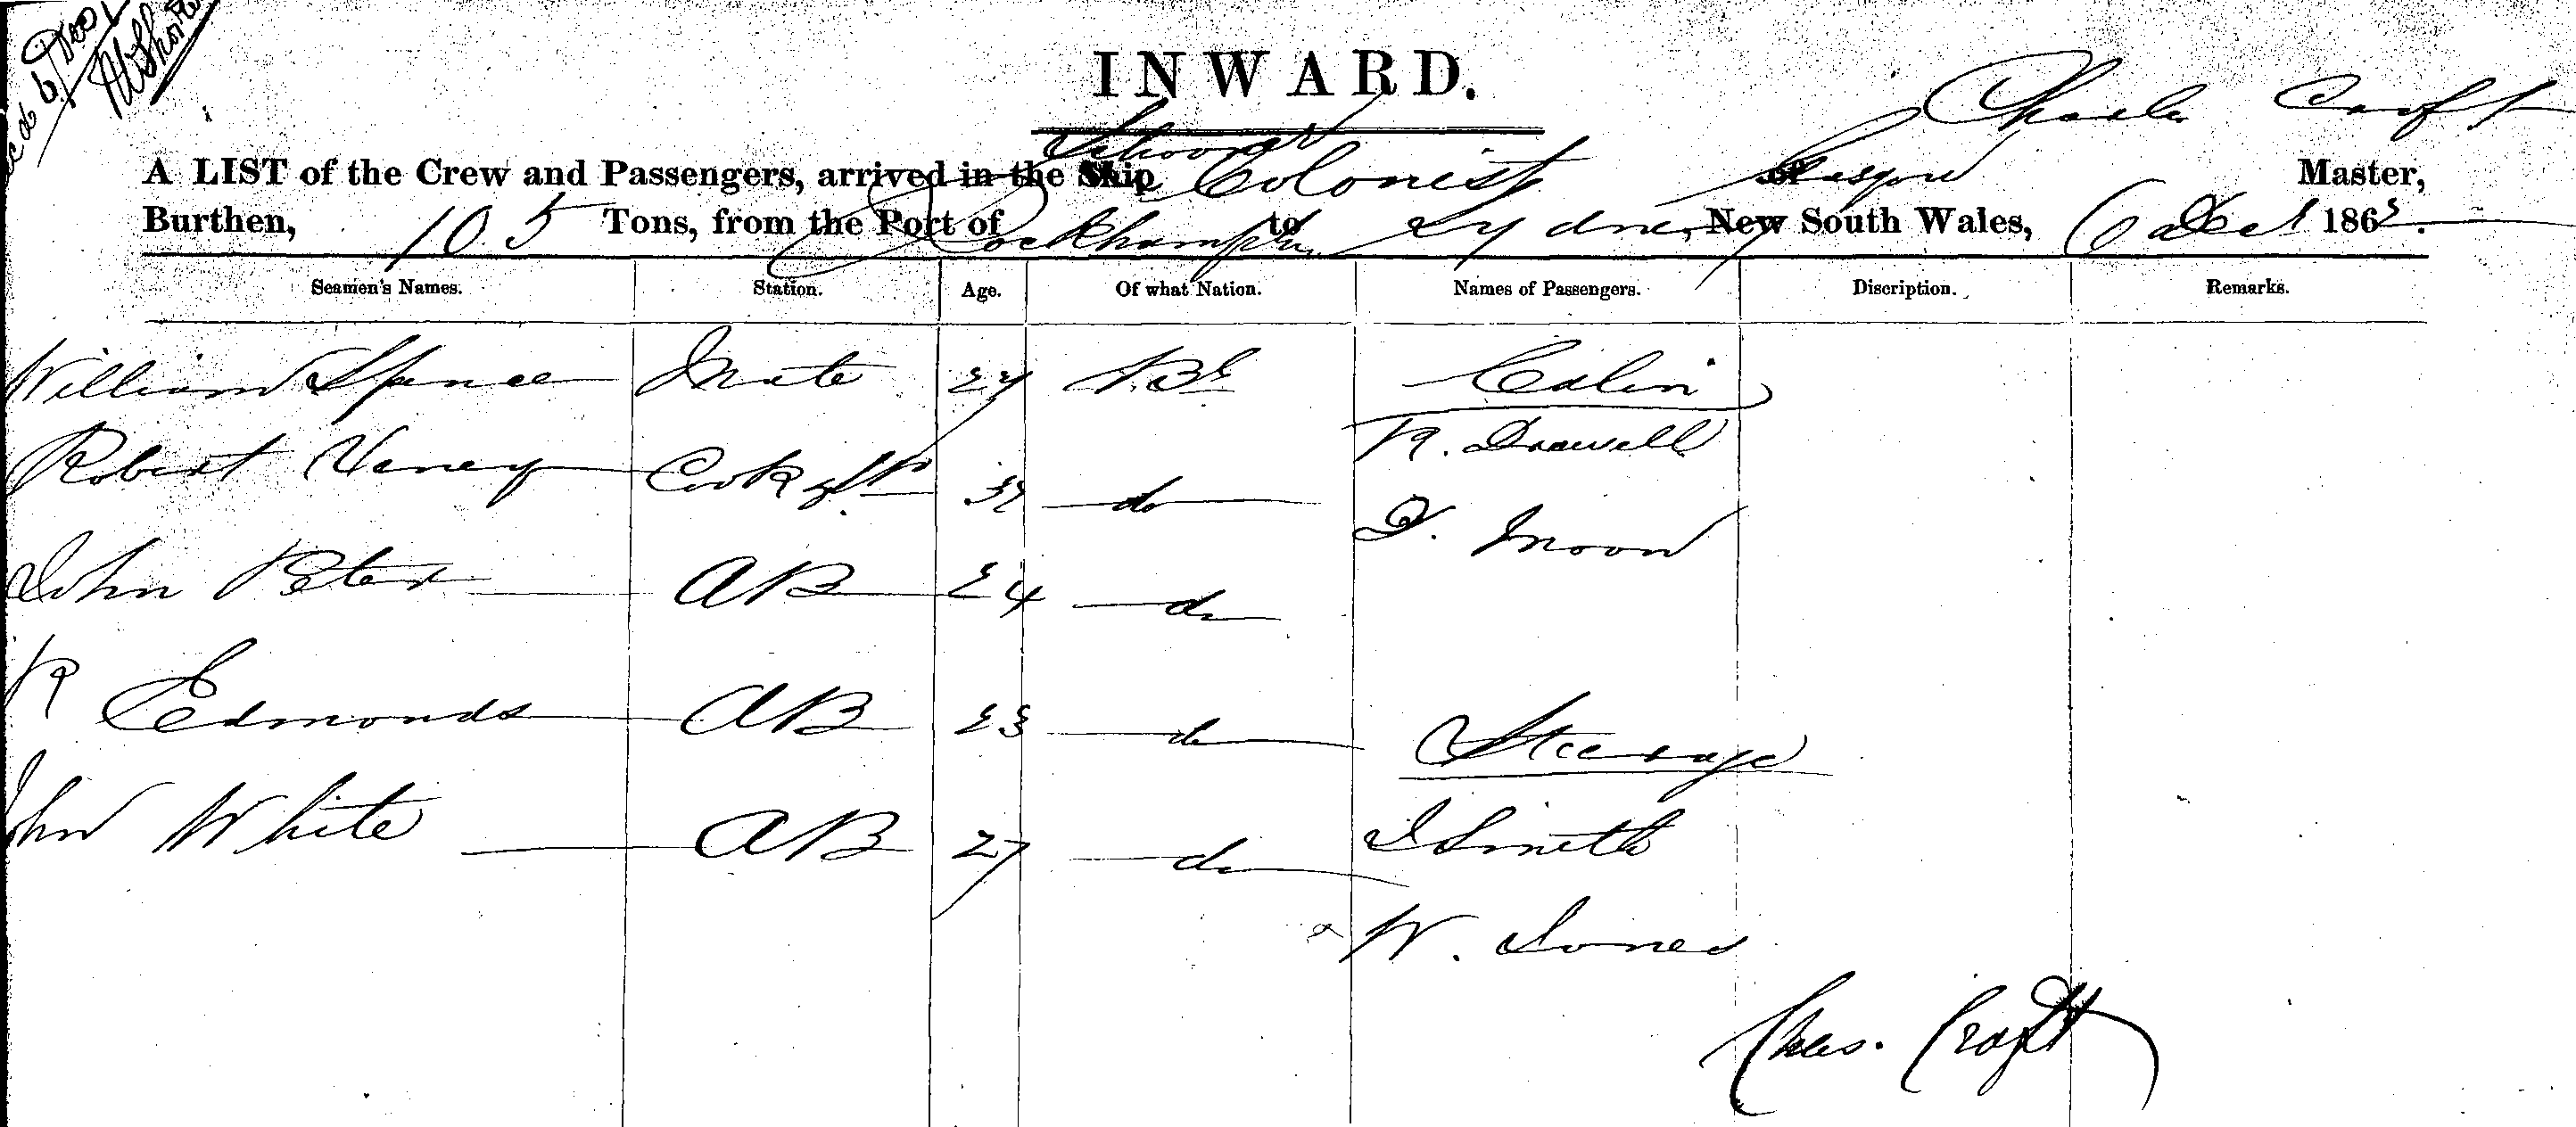 6 Dec
INWARD.
Schooner
Charles Croft
A LIST of the Crew and Passengers, arrived in the Ship Colonist of Glasgow Master,
Burthen, 105 Tons, from the Port of Rockhampton to Sydney, New South Wales, 6 Dec 1862.
Seamen's Names. Station. Age. Of what Nation. Names of Passengers. Discription. Remarks.
William Spence Mate 27 Cabin
Robert Cook 37 do R.
John Peter AB 24 do F. Moon
R Edmonds AB 23 do Steerage
John White AB 27 do J Smith
W. Jones
Chas. Croft